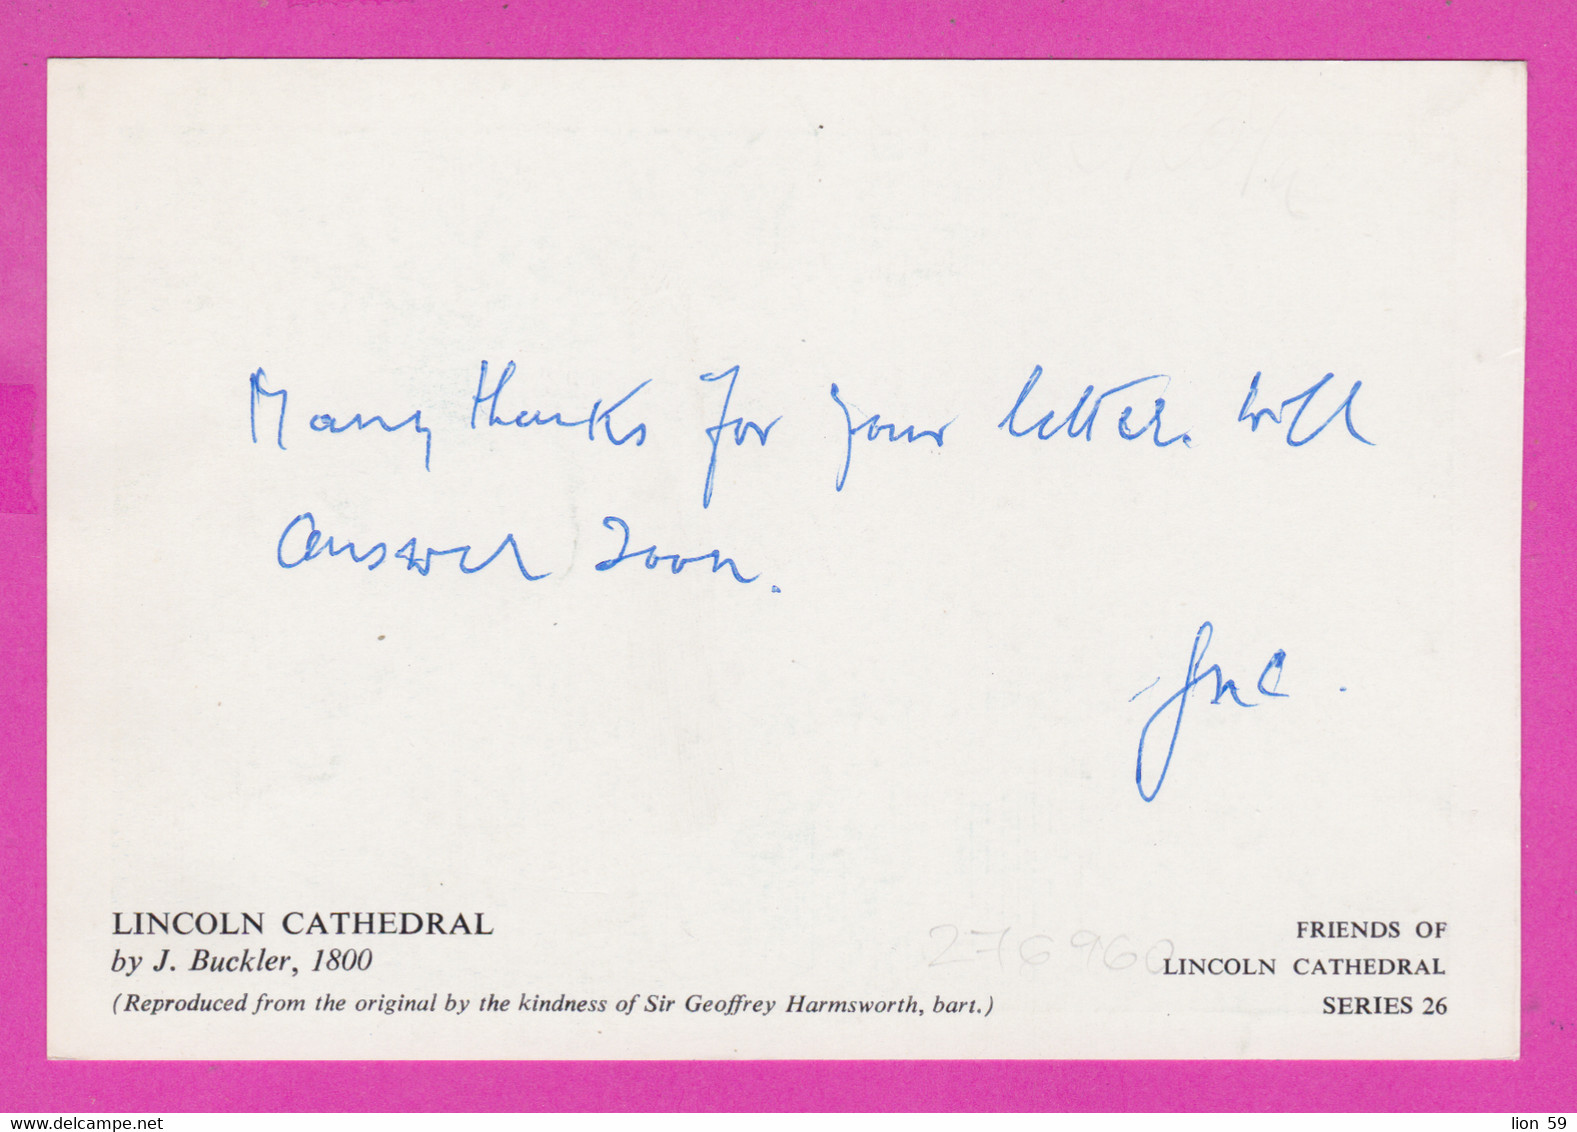 Many thanks for your letter. Will
answer soon.
LINCOLN CATHEDRAL
by J. Buckler, 1800
(Reproduced from the original by the kindness of Sir Geoffrey Harmsworth, bart.)
276960
FRIENDS OF
LINCOLN CATHEDRAL
SERIES 26
www.delcampe.net
lion 59